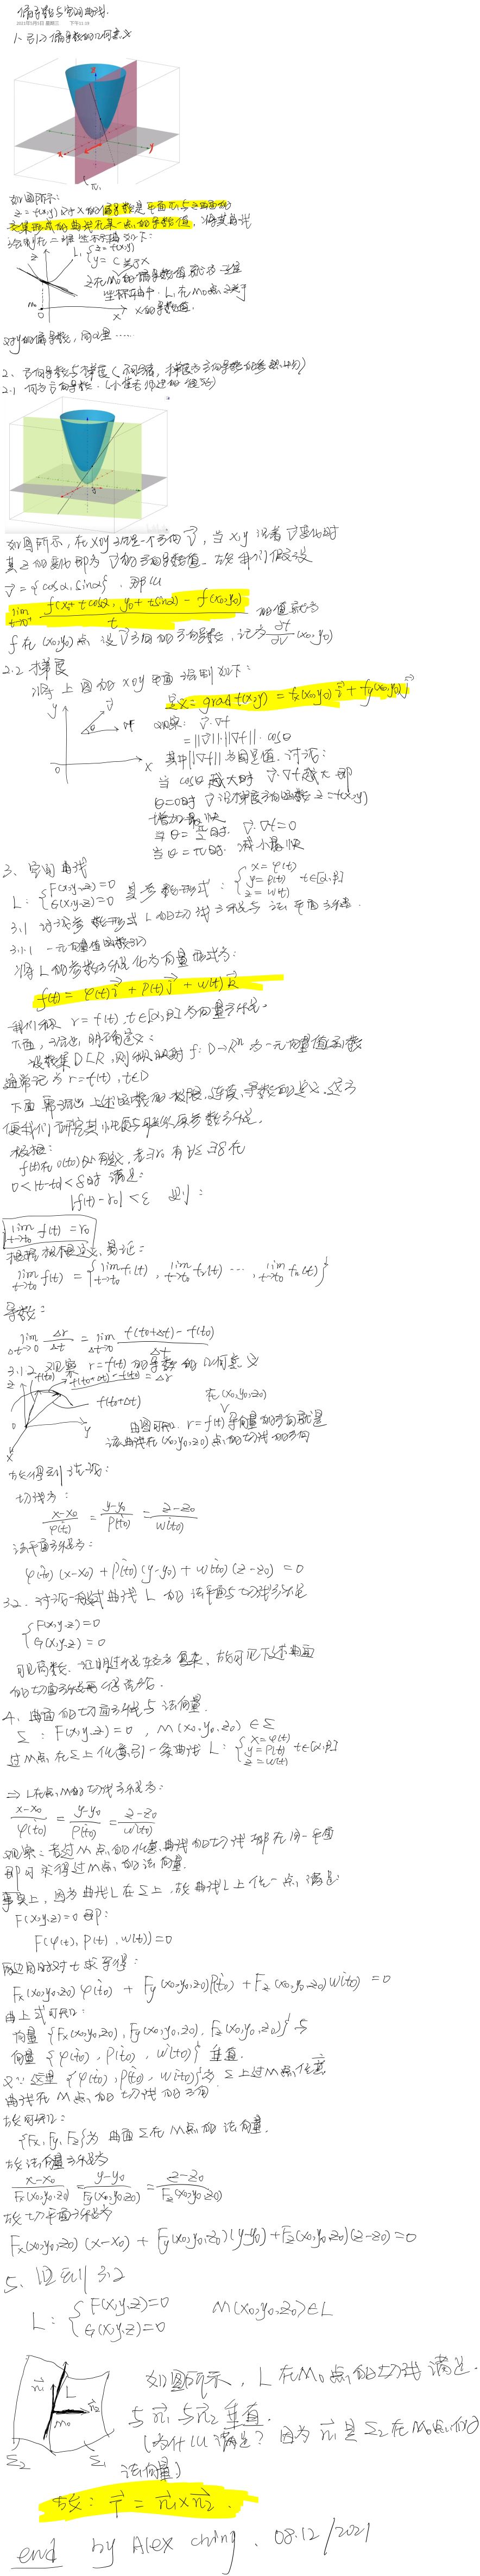 偏导数与空间曲线.
1. 引入偏导数的几何意义
z
x
y
π₁
如图所示:
z = f(x,y) 对于 x 的偏导数是平面π₁与z曲面的
交集形成的曲线在某一点的导数值, 将其曲线
绘制在二维坐标轴如下:
L₁ { z = f(x,y)
y = C 关于x
z在M₀的偏导数值就为二维
坐标平面中, L₁在M₀点z关于
x的导数值.
z
M₀
O
x
对y的偏导数, 同理……
2. 方向导数与梯度
2.1 何为方向导数.
如图所示, 在xoy面上一个方向 v⃗, 当 x,y 沿着v⃗变化时
其z的变化即为v⃗的方向导数值. 故我们假设
v⃗ = {cosα, sinα}. 那么
lim t→0⁺ [f(x₀+tcosα, y₀+tsinα) - f(x₀,y₀)] / t 的值就为
f 在 (x₀,y₀) 点 沿v⃗方向的方向导数, 记为 ∂f/∂v (x₀,y₀)
2.2 梯度
将上图的xoy平面绘制如下:
定义: grad f(x,y) = fx(x₀,y₀) i⃗ + fy(x₀,y₀) j⃗
y
v⃗
θ
∇f
O
x
观察: v⃗·∇f
= ||v⃗||·||∇f||·cosθ
其中||∇f||为固定值. 讨论:
当 cosθ 越大时 v⃗·∇f越大 即
θ=0时 v⃗沿梯度方向函数 z=f(x,y)
增加最快
当θ=π/2时. v⃗·∇f=0
当θ=π时. 减小最快
3. 空间曲线
L: { F(x,y,z)=0
G(x,y,z)=0 其参数形式: { x = φ(t)
y = ρ(t) t∈[α,β]
z = w(t)
3.1 讨论参数形式L的切线方程与法平面方程.
3.1.1 一元向量值函数
将L的参数方程化为向量形式为:
f(t) = φ(t) i⃗ + ρ(t) j⃗ + w(t) k⃗
我们称 r = f(t), t∈[α,β] 为向量方程.
下面, 给出明确定义:
设数集D⊂R, 则称映射 f: D→Rⁿ 为一元向量值函数
通常记为 r=f(t), t∈D
下面 给出上述函数的极限, 连续, 导数的定义. 这方
便我们研究其性质
极限:
0<|t-t₀|<δ时 满足:
|f(t)-r₀|<ε 则:
lim t→t₀ f(t) = r₀
根据极限定义, 易证:
lim t→t₀ f(t) = { lim t→t₀ f₁(t), lim t→t₀ f₂(t) …, lim t→t₀ fₙ(t) }
导数:
lim Δt→0 Δr/Δt = lim Δt→0 [f(t₀+Δt)-f(t₀)]/Δt
3.1.2 观察 r=f(t) 的导数的几何意义
z
f(t₀)
f(t₀+Δt)-f(t₀)=Δr
f(t₀+Δt)
O
y
x
在(x₀,y₀,z₀)
由图可知. r=f(t) 导向量的方向就是
该曲线在 (x₀,y₀,z₀) 点的切线的方向
故得到结论:
切线为:
(x-x₀)/φ'(t₀) = (y-y₀)/ρ'(t₀) = (z-z₀)/w'(t₀)
法平面方程为:
φ'(t₀)(x-x₀) + ρ'(t₀)(y-y₀) + w'(t₀)(z-z₀) = 0
3.2. 讨论一般式曲线 L 的法平面与切线方程
{ F(x,y,z)=0
G(x,y,z)=0
的切面方程再得结论.
4. 曲面的切面方程与法向量.
Σ: F(x,y,z)=0, M(x₀,y₀,z₀)∈Σ
过M点在Σ上任意引一条曲线 L: { x=φ(t)
y=ρ(t) t∈[α,β]
z=w(t)
⇒ L在点M的切线方程为:
(x-x₀)/φ'(t₀) = (y-y₀)/ρ'(t₀) = (z-z₀)/w'(t₀)
观察: 若过M点的任意曲线的切线都在同一平面
即可求得过M点的法向量.
事实上, 因为曲线L在Σ上, 故曲线L上任一点, 满足
F(x,y,z)=0 即:
F(φ(t), ρ(t), w(t))=0
两边同时对t求导得:
Fx(x₀,y₀,z₀)φ'(t₀) + Fy(x₀,y₀,z₀)ρ'(t₀) + Fz(x₀,y₀,z₀)w'(t₀) = 0
由上式可知:
向量 {Fx(x₀,y₀,z₀), Fy(x₀,y₀,z₀), Fz(x₀,y₀,z₀)} 与
向量 {φ'(t₀), ρ'(t₀), w'(t₀)} 垂直.
又∵ 这里 {φ'(t₀), ρ'(t₀), w'(t₀)}为 Σ上过M点任意
曲线在M点的切线的方向
故可知:
{Fx, Fy, Fz}为 曲面Σ在M点的法向量.
故法向量方程为
(x-x₀)/Fx(x₀,y₀,z₀) = (y-y₀)/Fy(x₀,y₀,z₀) = (z-z₀)/Fz(x₀,y₀,z₀)
故切平面方程为
Fx(x₀,y₀,z₀)(x-x₀) + Fy(x₀,y₀,z₀)(y-y₀) + Fz(x₀,y₀,z₀)(z-z₀)=0
5. 回到 3.2
L: { F(x,y,z)=0
G(x,y,z)=0 M(x₀,y₀,z₀)∈L
n⃗₁
L
n⃗₂
M₀
Σ₂
Σ₁
如图所示, L在M₀点的切线满足.
与n⃗₁与n⃗₂垂直.
(为什么满足? 因为n⃗₁是Σ₂在M₀点的
法向量)
故: T⃗ = n⃗₁×n⃗₂.
end by Alex ching. 08.12/2021